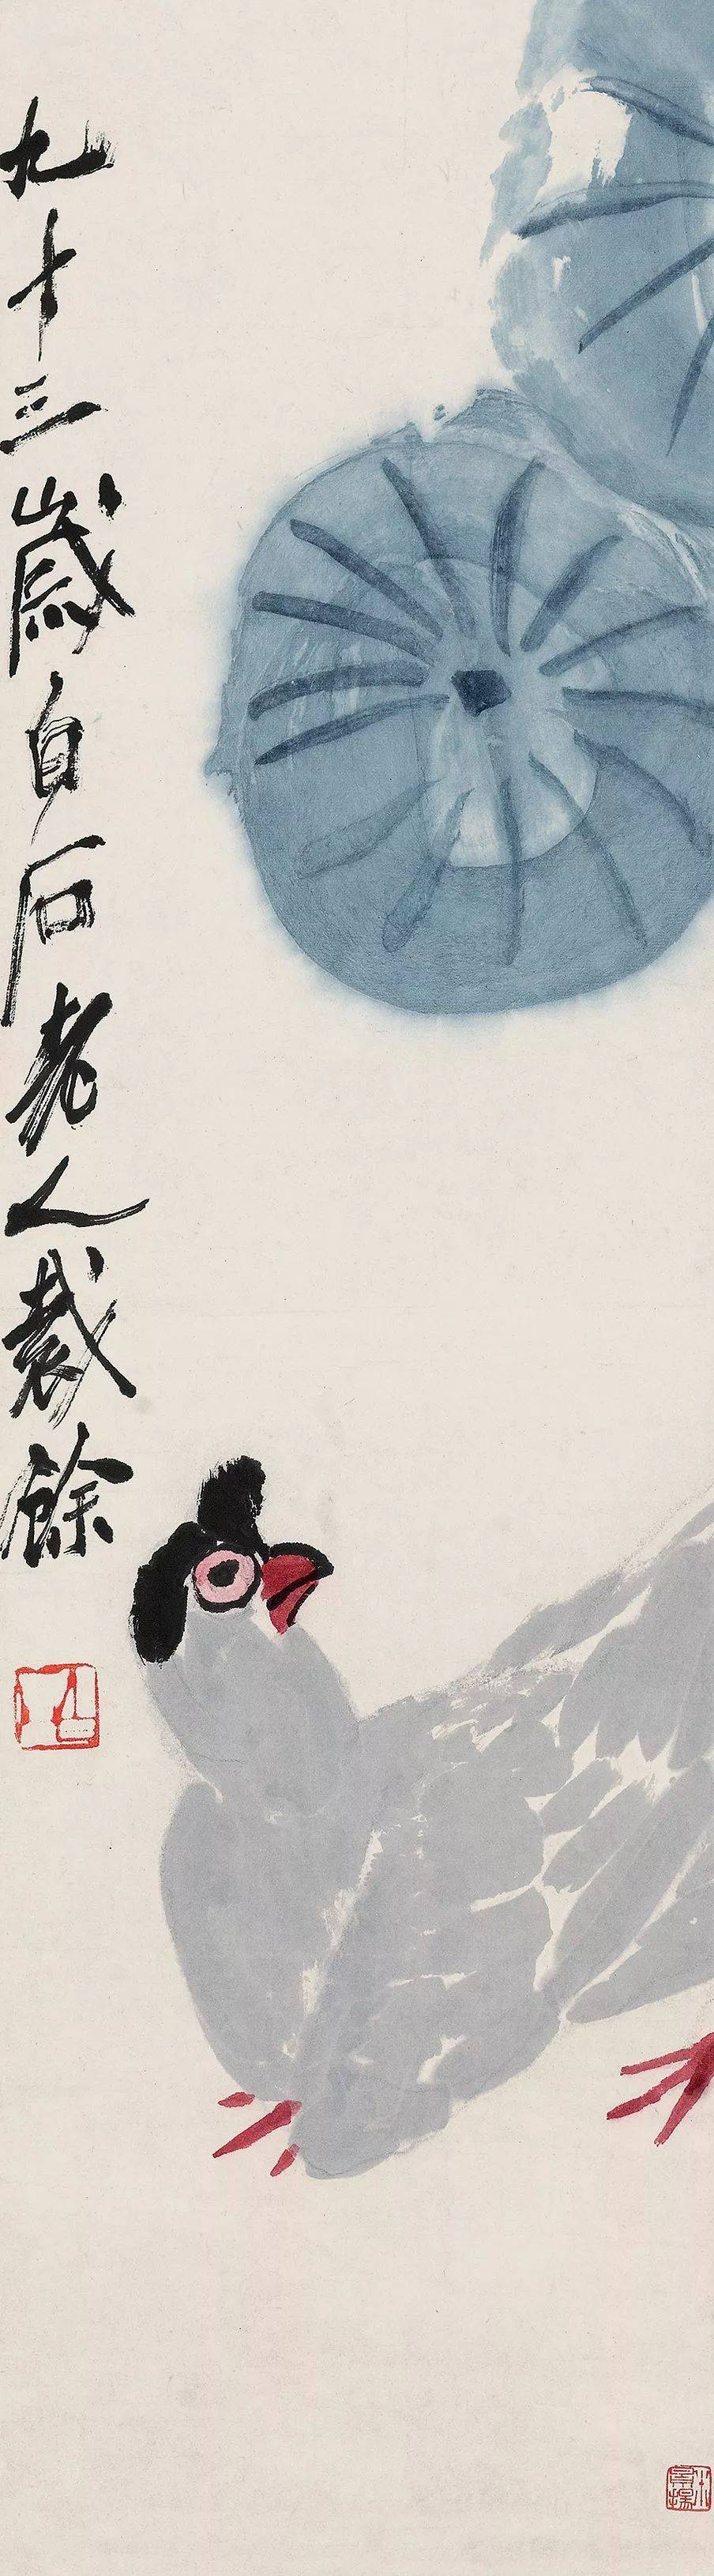 九十三歲白石老人裁餘